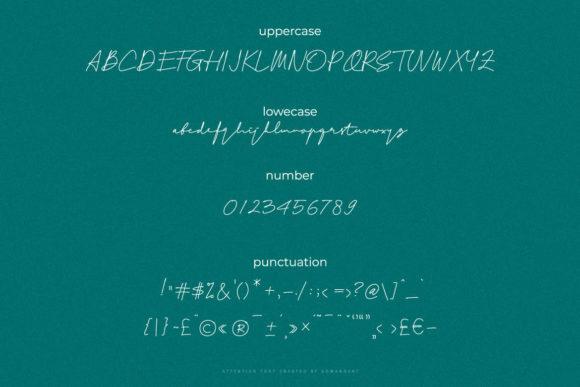 uppercase
ABCDEFGHIJKLMNOPQRSTUVWXYZ
lowecase
abcdefghijklmnopqrstuvwxyz
number
0123456789
punctuation
!"#$%&'()*+,-./:;<=>?@\]^_`
{|}~£¨©«®¯±´¸»×
„‹›£€−
ATTENTION FONT CREATED BY